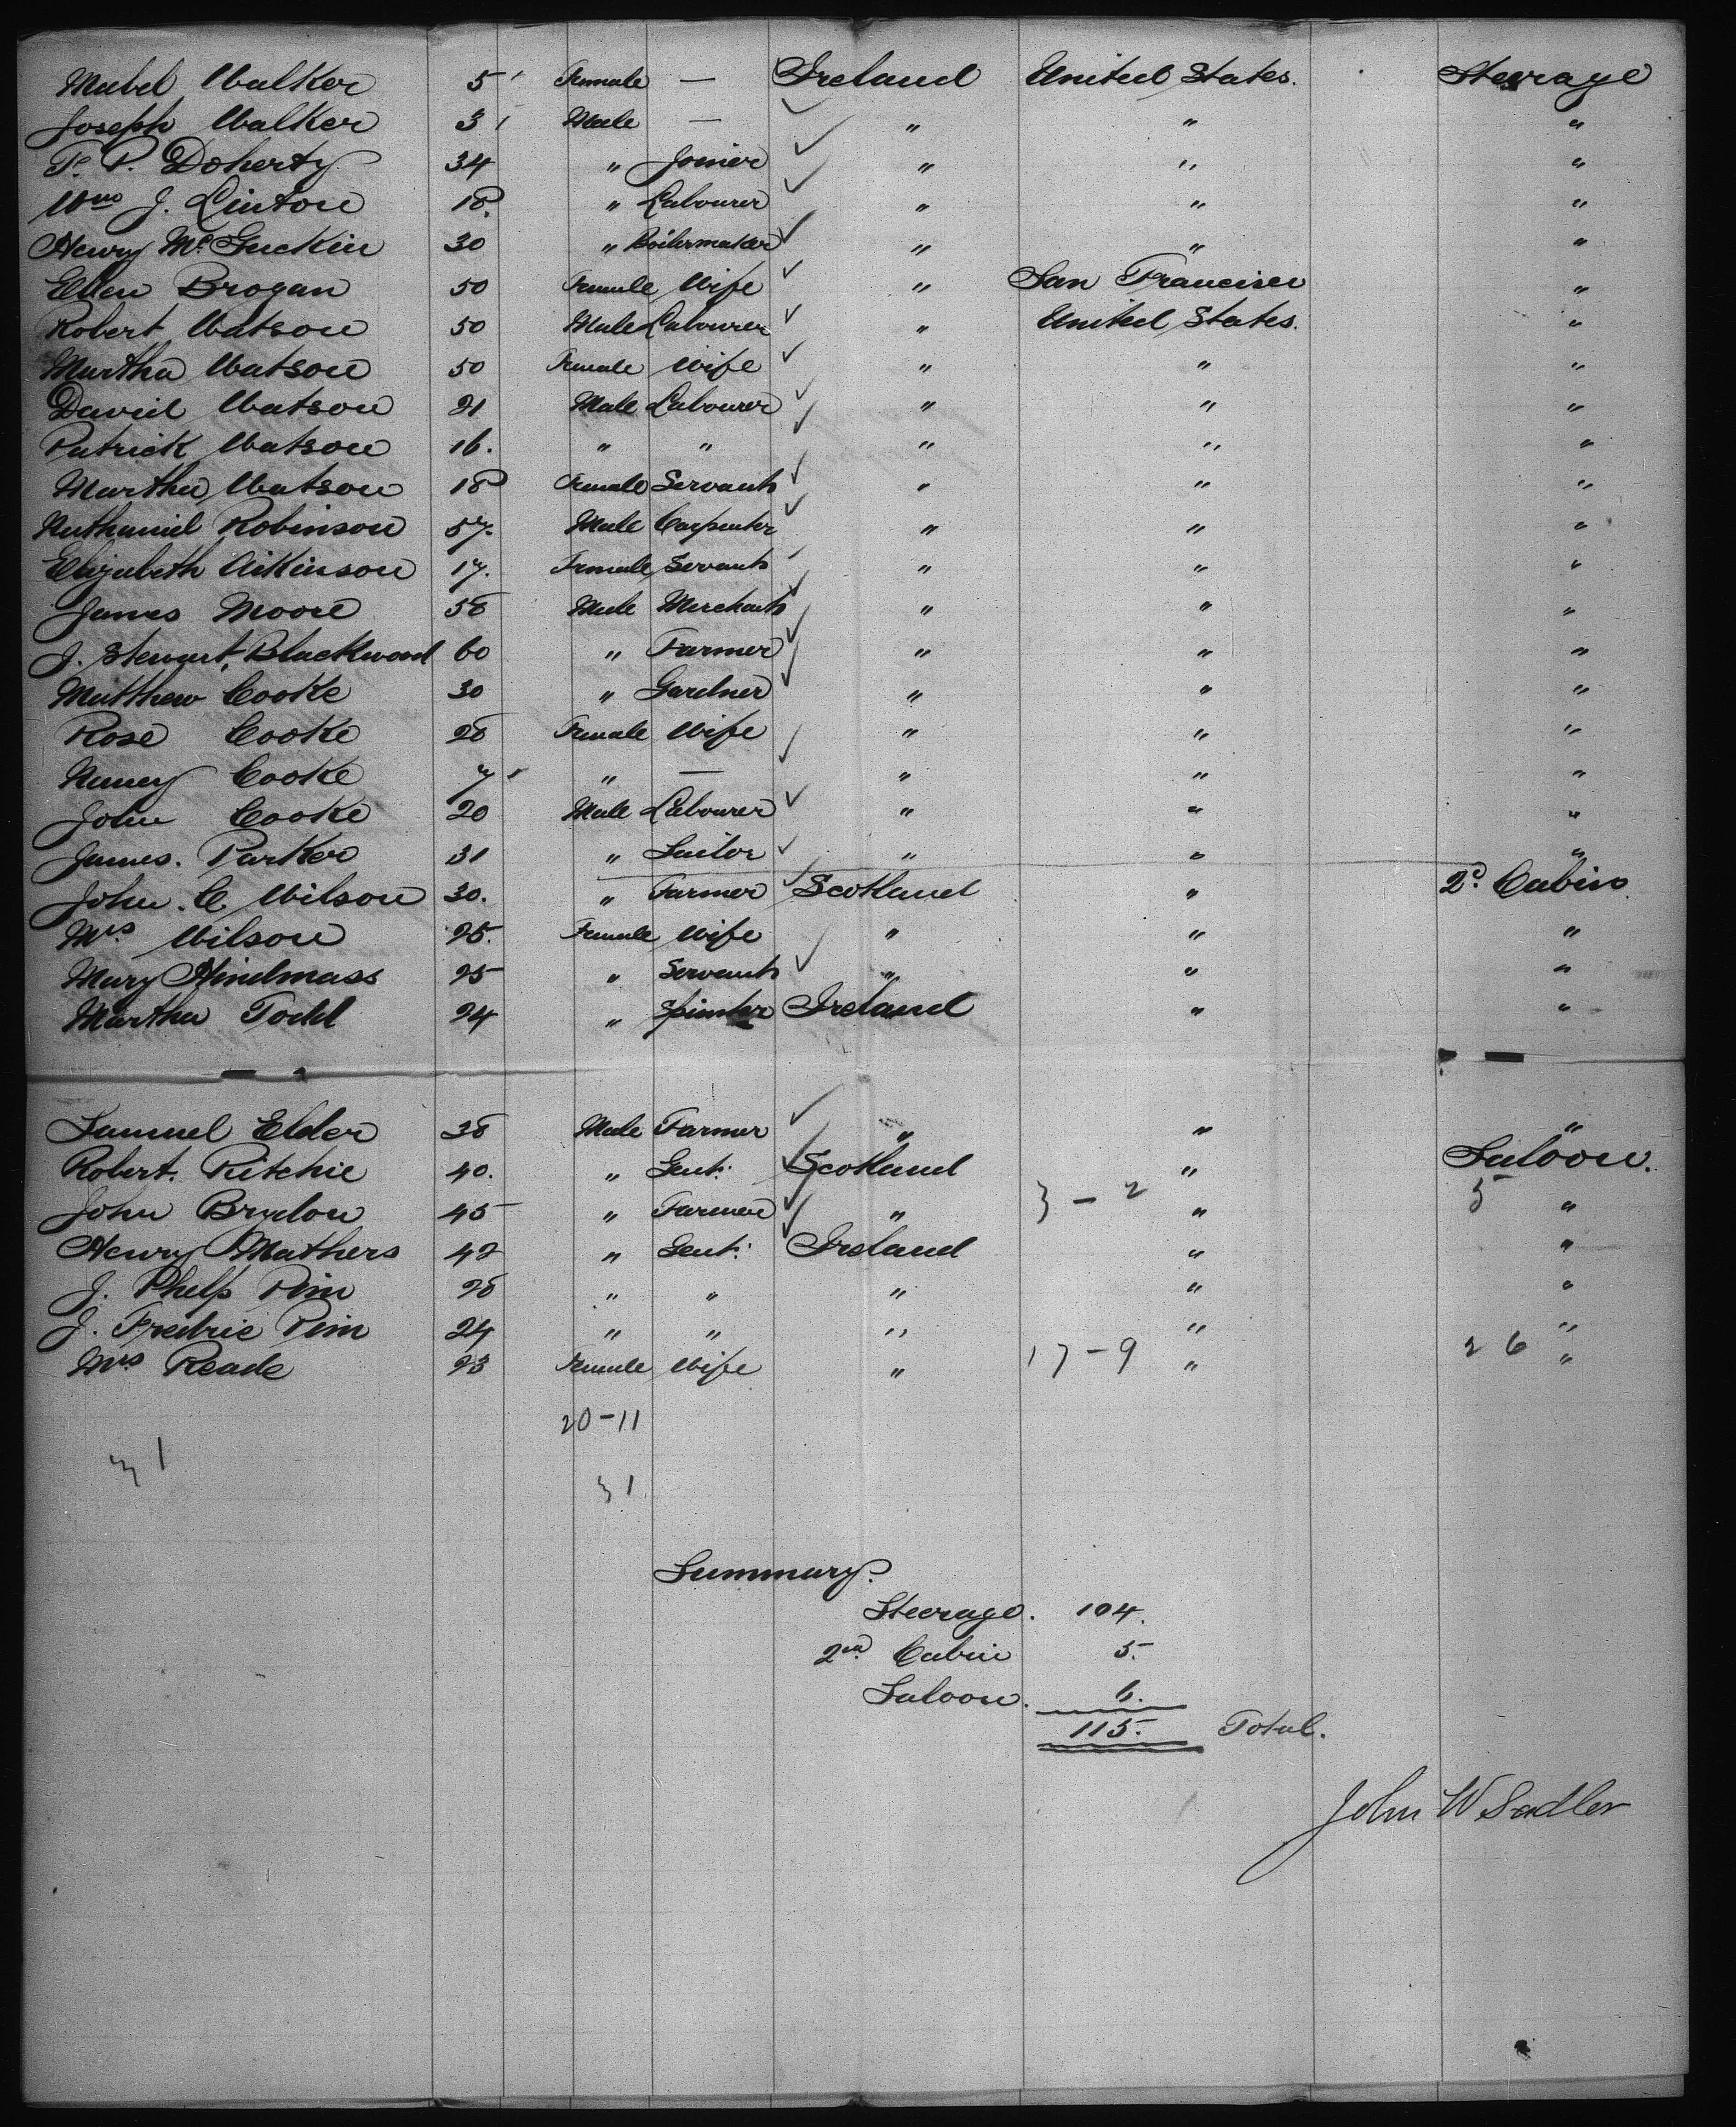 Mabel Walker 5 Female — Ireland United States. Steerage
Joseph Walker 3 Male — " " "
P. Doherty 34 " Joiner " " "
Wm J. Linton 18. " Labourer " " "
Henry McGuckin 30 " Boilermaker " " "
Ellen Brogan 50 Female Wife " San Francisco "
Robert Watson 50 Male Labourer " United States. "
Martha Watson 50 Female Wife " " "
David Watson 21 Male Labourer " " "
Patrick Watson 16. " " " " "
Martha Watson 18 Female Servant " " "
Nathaniel Robinson 57. Male Carpenter " " "
Elizabeth Aikinson 17. Female Servant " " "
James Moore 58 Male Merchant " " "
J. Stewart Blackwood 60 " Farmer " " "
Matthew Cooke 30 " Gardner " " "
Rose Cooke 28 Female Wife " " "
Nancy Cooke 7 " — " " "
John Cooke 20 Male Labourer " " "
James. Parker 31 " Sailor " " "
John. C. Wilson 30. " Farmer Scotland " 2d. Cabin
Mrs Wilson 25. Female Wife " " "
Mary Hindmass 25 " Servant " " "
Martha Todd 24 " Spinster Ireland " "
Samuel Elder 38 Male Farmer " " "
Robert. Ritchie 40. " Gent: Scotland " Saloon.
John Brydon 45 " Farmer " 3 - 2 " 5 "
Henry Mathers 42 " Gent: Ireland " "
J. Phelps Pim 28 " " " " "
J. Fredric Pim 24 " " " " "
Mrs Reade 23 Female Wife " 17 - 9 " 26 "
20 - 11
31
31
Summary.
Steerage. 104.
2nd Cabin 5.
Saloon. 6.
115. Total.
John W Sadler